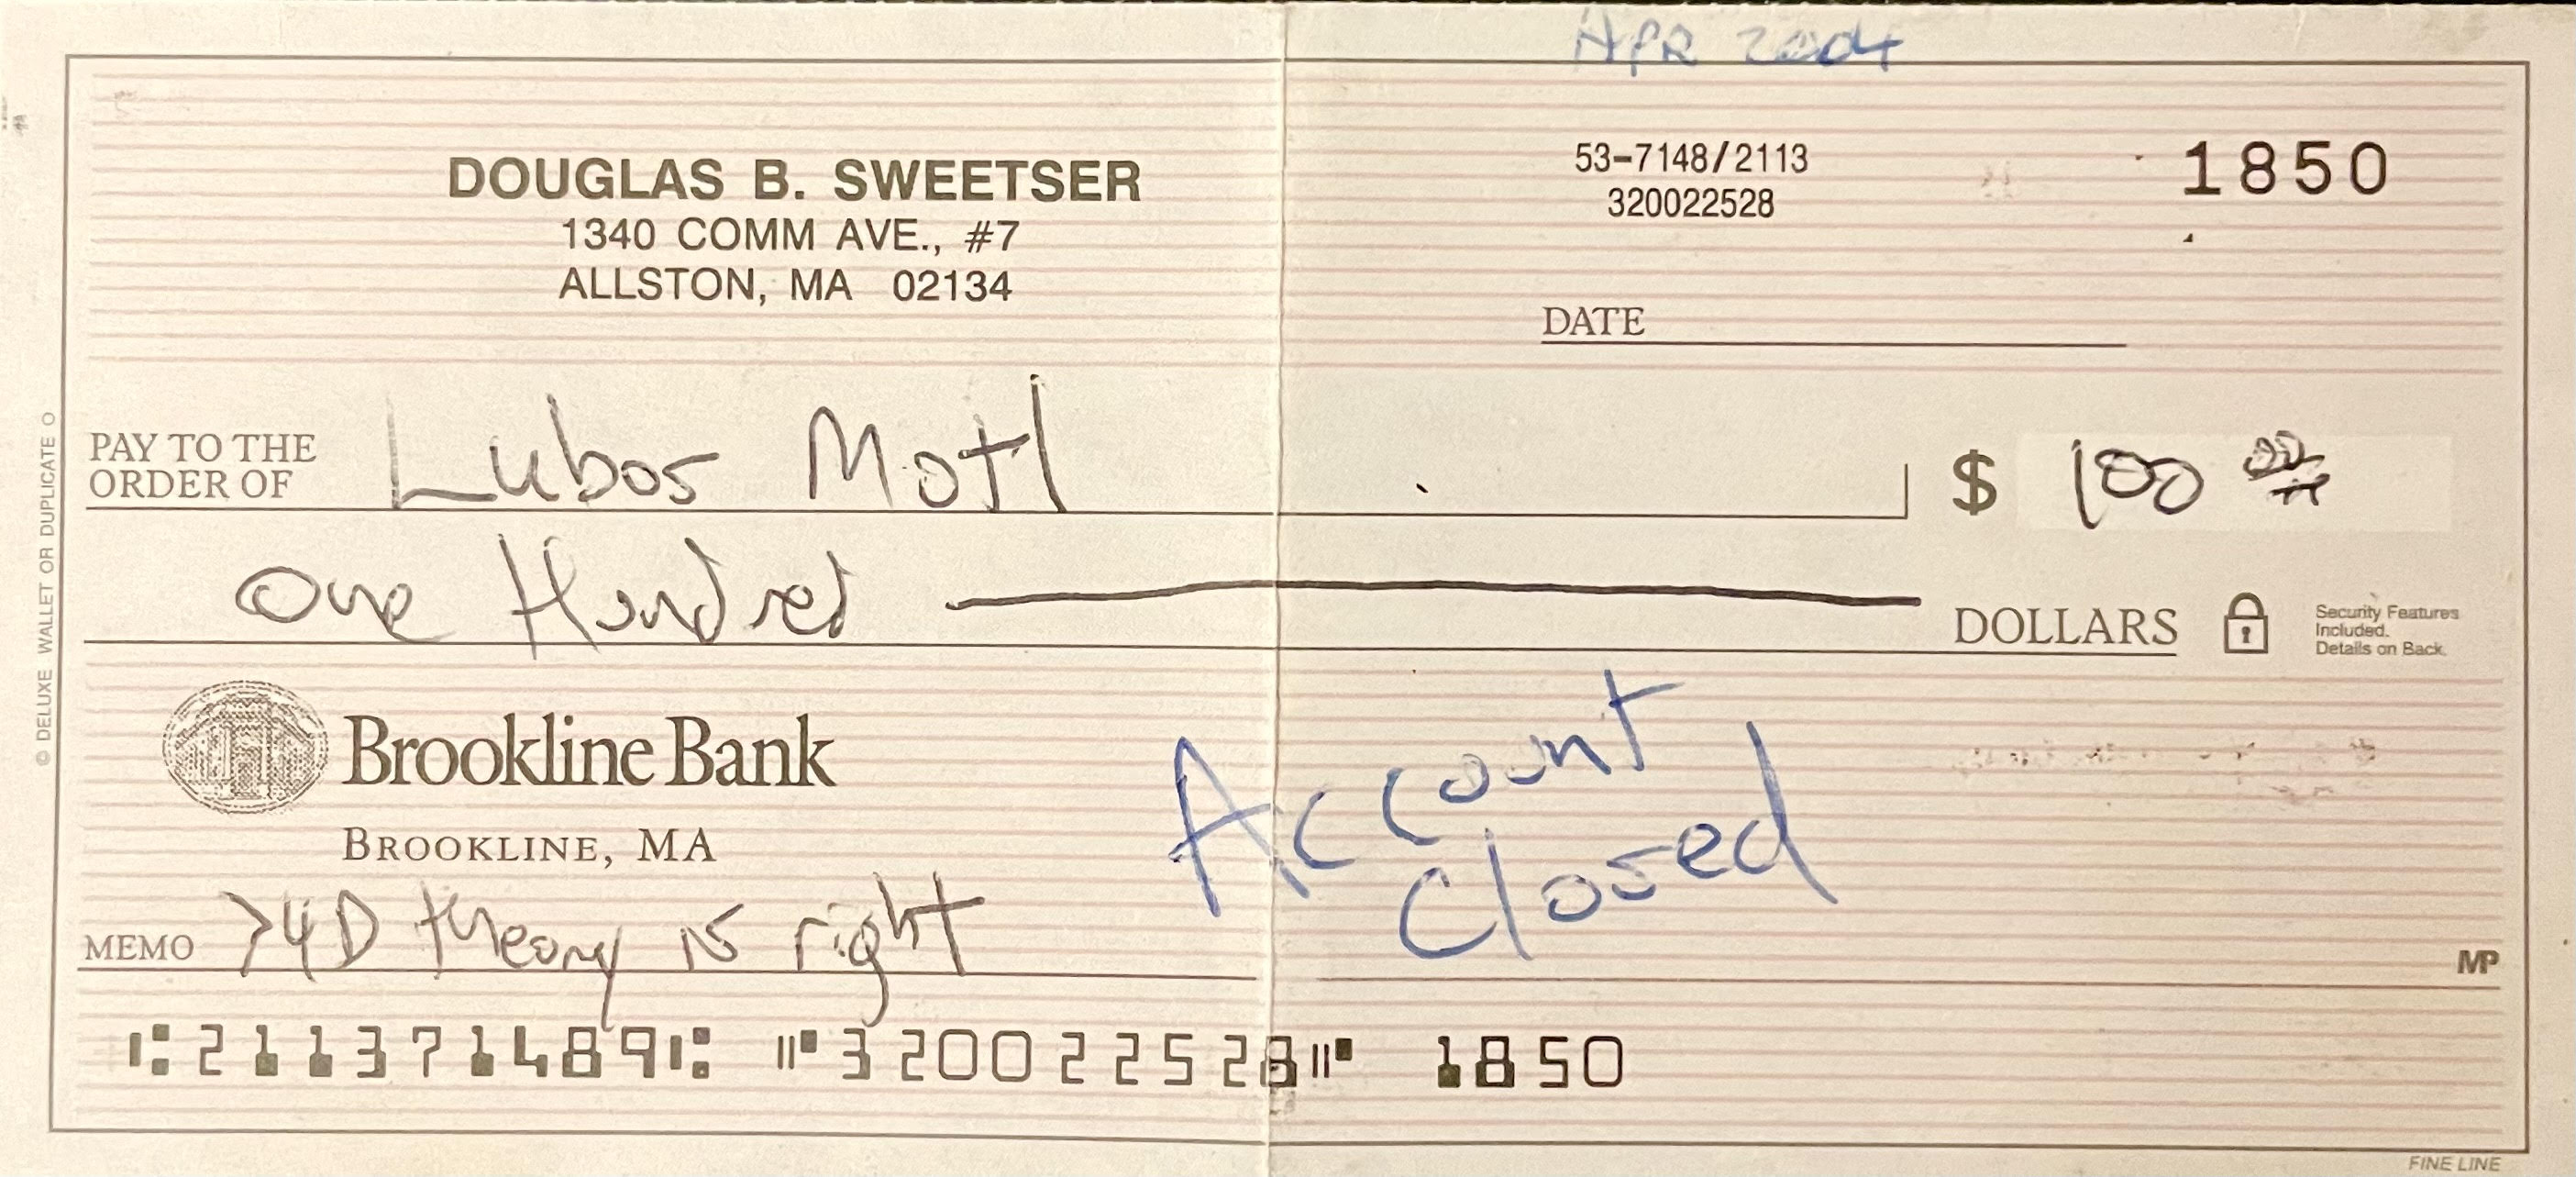 APR 2004
DOUGLAS B. SWEETSER
1340 COMM AVE., #7
ALLSTON, MA 02134
53-7148/2113
320022528
1850
DATE
PAY TO THE
ORDER OF
Lubos Motl
$ 100 00
One Hundred
DOLLARS
Security Features
Included.
Details on Back.
Brookline Bank
BROOKLINE, MA
Account
Closed
MEMO >4D theory is right
MP
⑆211371489⑆ ⑈320022528⑈ 1850
© DELUXE WALLET OR DUPLICATE O
FINE LINE